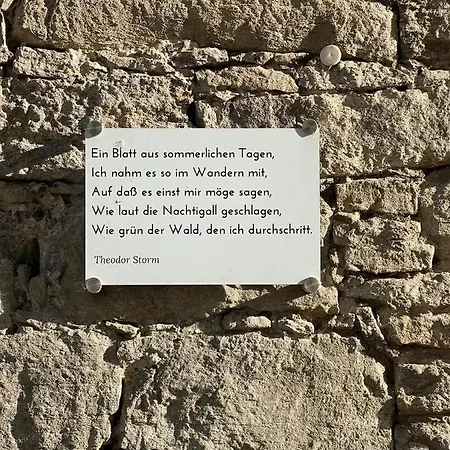 Ein Blatt aus sommerlichen Tagen,
Ich nahm es so im Wandern mit,
Auf daß es einst mir möge sagen,
Wie laut die Nachtigall geschlagen,
Wie grün der Wald, den ich durchschritt.
Theodor Storm